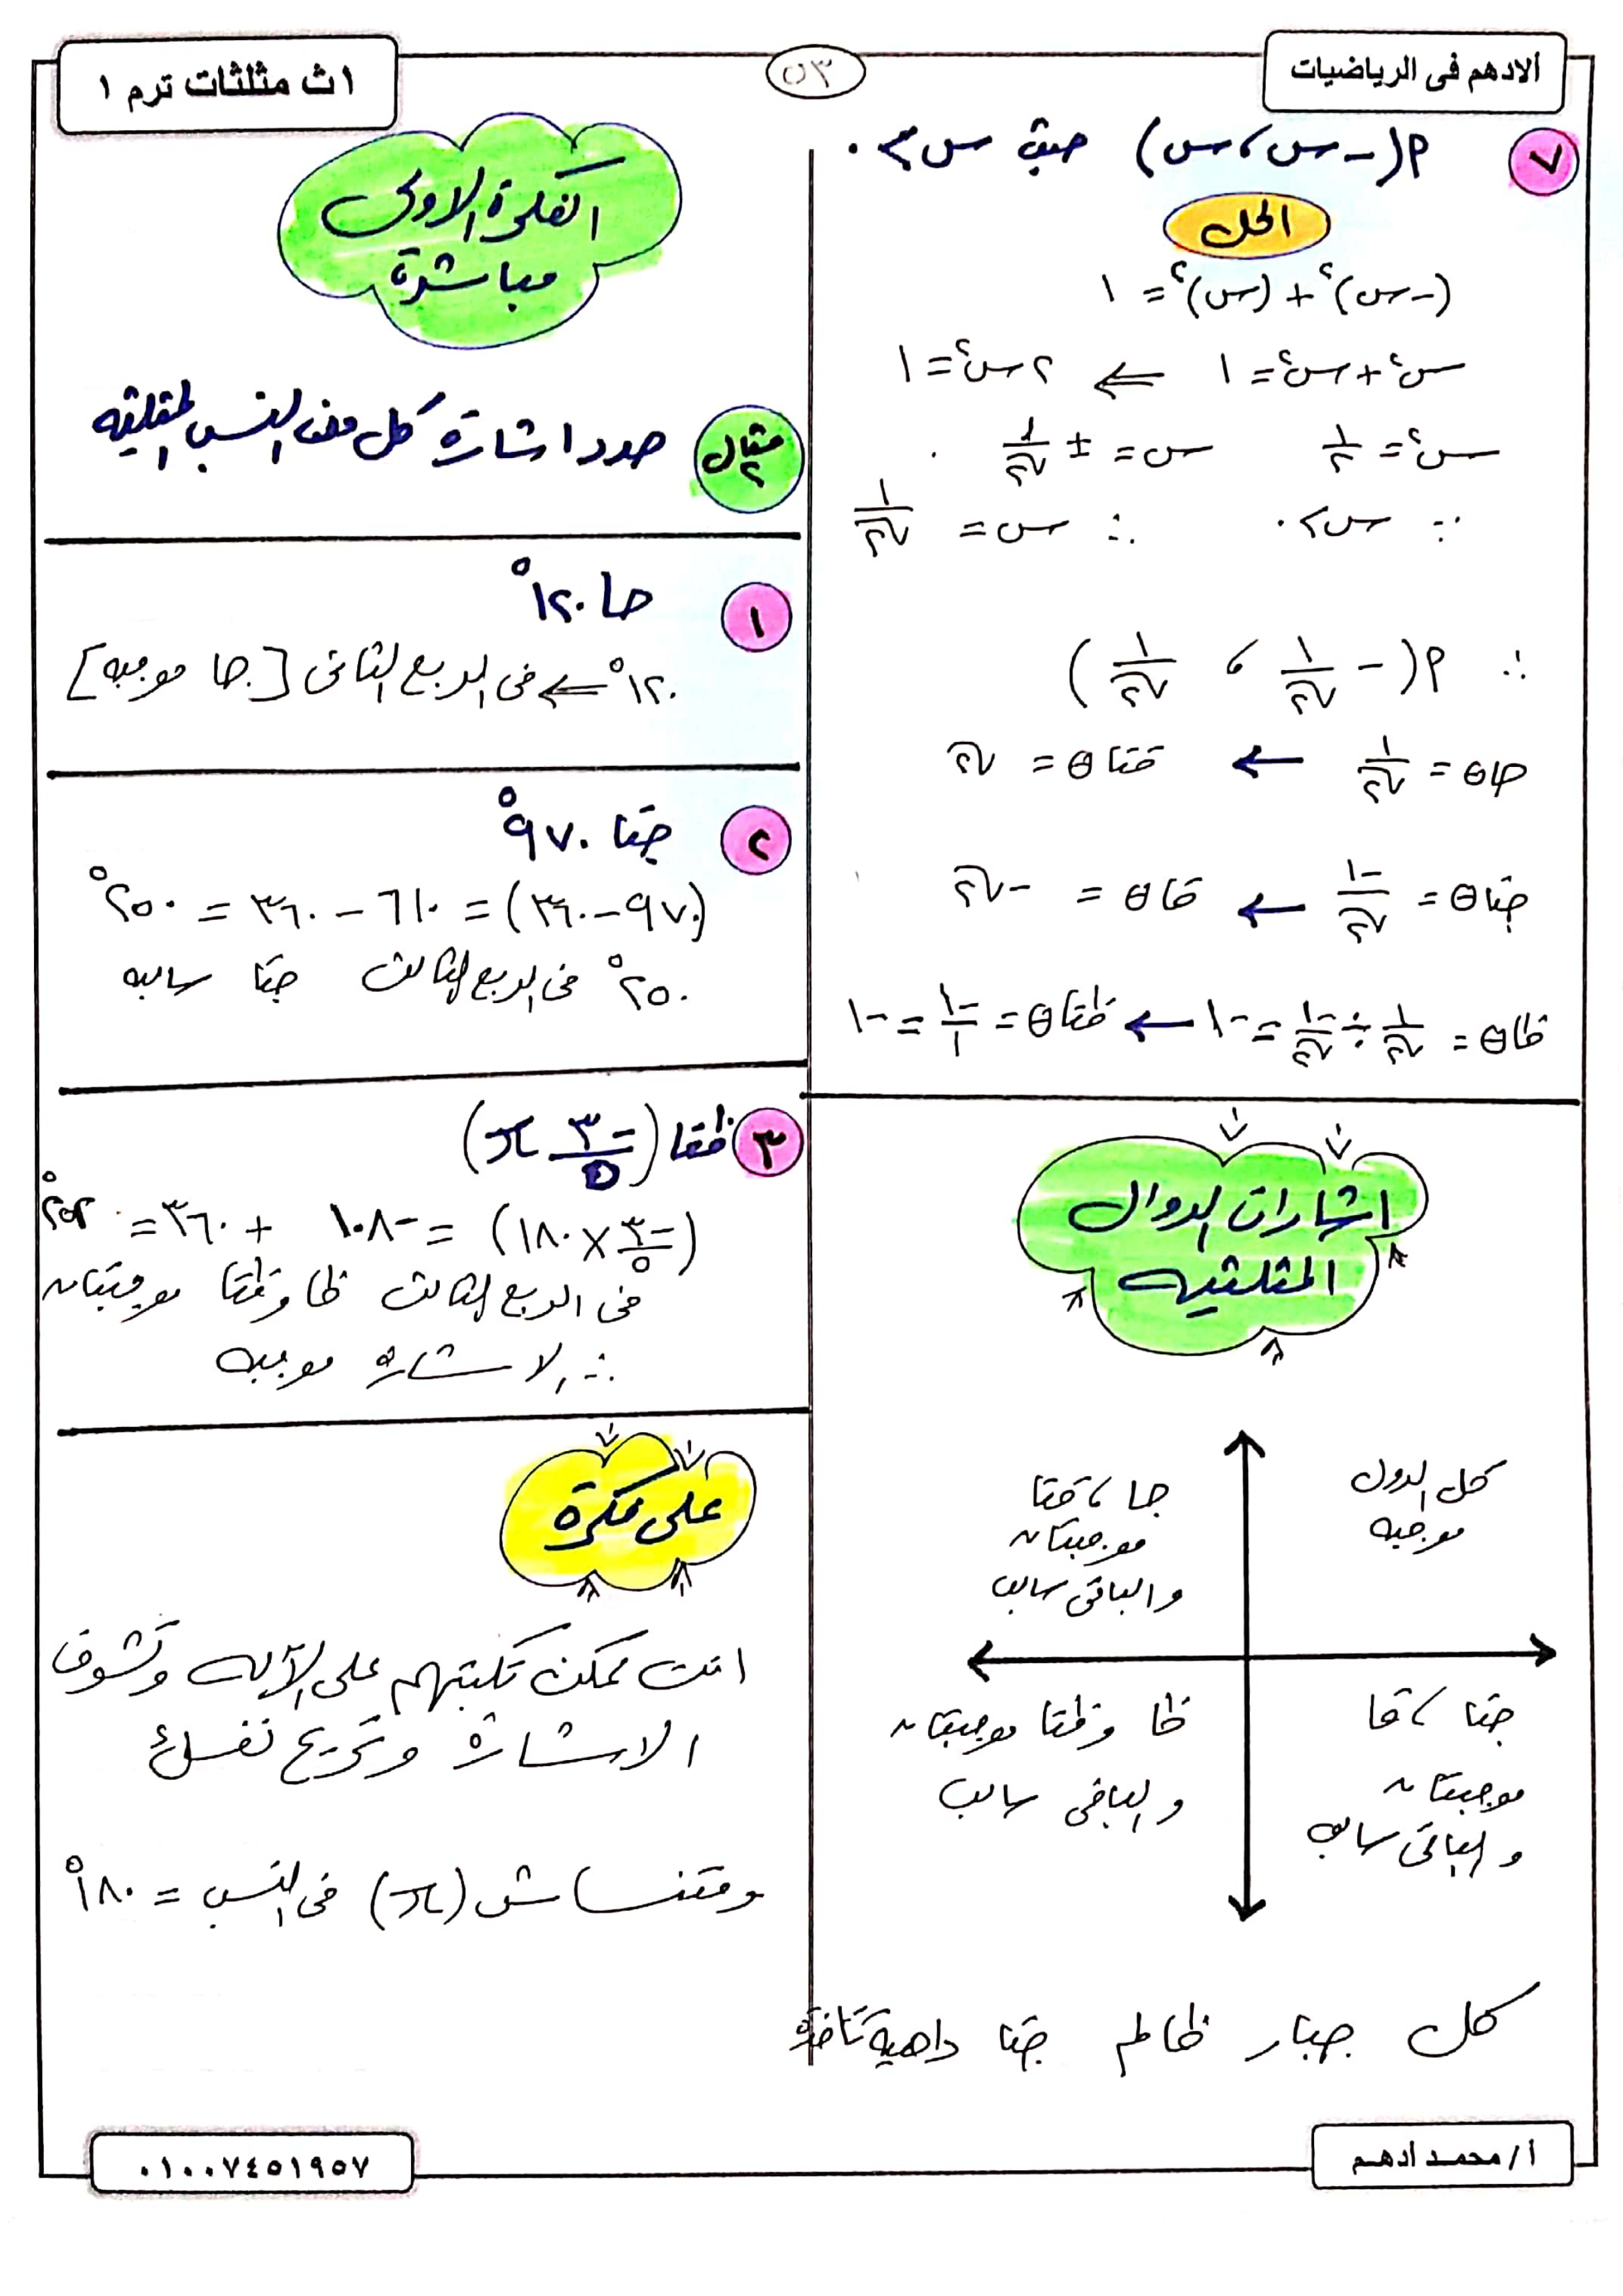 الادهم فى الرياضيات
٥٣
١ث مثلثات ترم ١
٧ م(-س ، س) حيث س > ٠
الحل
(-س)² + (س)² = ١
س² + س² = ١ ⇐ ٢س² = ١
س² = ١/٢ س = ± ١/√٢
∵ س > ٠ ∴ س = ١/√٢
∴ م(- ١/√٢ ، ١/√٢)
حاθ = ١/√٢ ← قتاθ = √٢
جتاθ = -١/√٢ ← قاθ = -√٢
ظاθ = ١/√٢ ÷ -١/√٢ = -١ ← ظتاθ = -١/١ = -١
اشارات الدوال
المثلثيه
كل الدول
موجبه
جا ، قتا
موجبتان
والباقى سالب
ظا وظتا موجبتان
والباقى سالب
جتا ، قا
موجبتان
والباقى سالب
كل جبار ظالم جتا داهية تاخده
الفكرة الاولى
مباشرة
مثال ٢ حدد اشارة كل من النسب المثلثيه
١ حا ١٢٠°
١٢٠° ⇐ فى الربع الثانى [جا موجبه]
٢ جتا ٩٧٠°
(٩٧٠ - ٣٦٠) = ٦١٠ - ٣٦٠ = ٢٥٠°
٢٥٠° فى الربع الثالث جتا سالبه
٣ ظتا (-٣/٥ π)
(-٣/٥ × ١٨٠) = -١٠٨ + ٣٦٠ = ٢٥٢°
فى الربع الثالث ظا وظتا موجبتان
∴ الاشارة موجبه
على فكرة
انت ممكن تكتبهم على الآله وتشوف
الاشارة وتريح نفسك
ومتنساش (π) فى النسب = ١٨٠°
أ/ محمد أدهم
٠١٠٠٧٤٥١٩٥٧